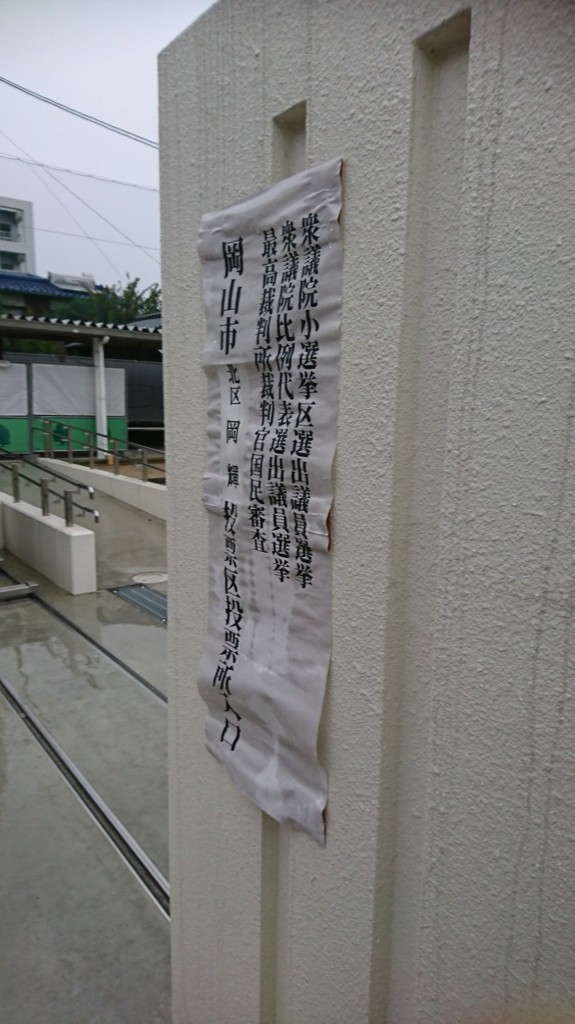 衆議院小選挙区選出議員選挙
衆議院比例代表選出議員選挙
最高裁判所裁判官国民審査
岡山市北区岡輝投票区投票所入口